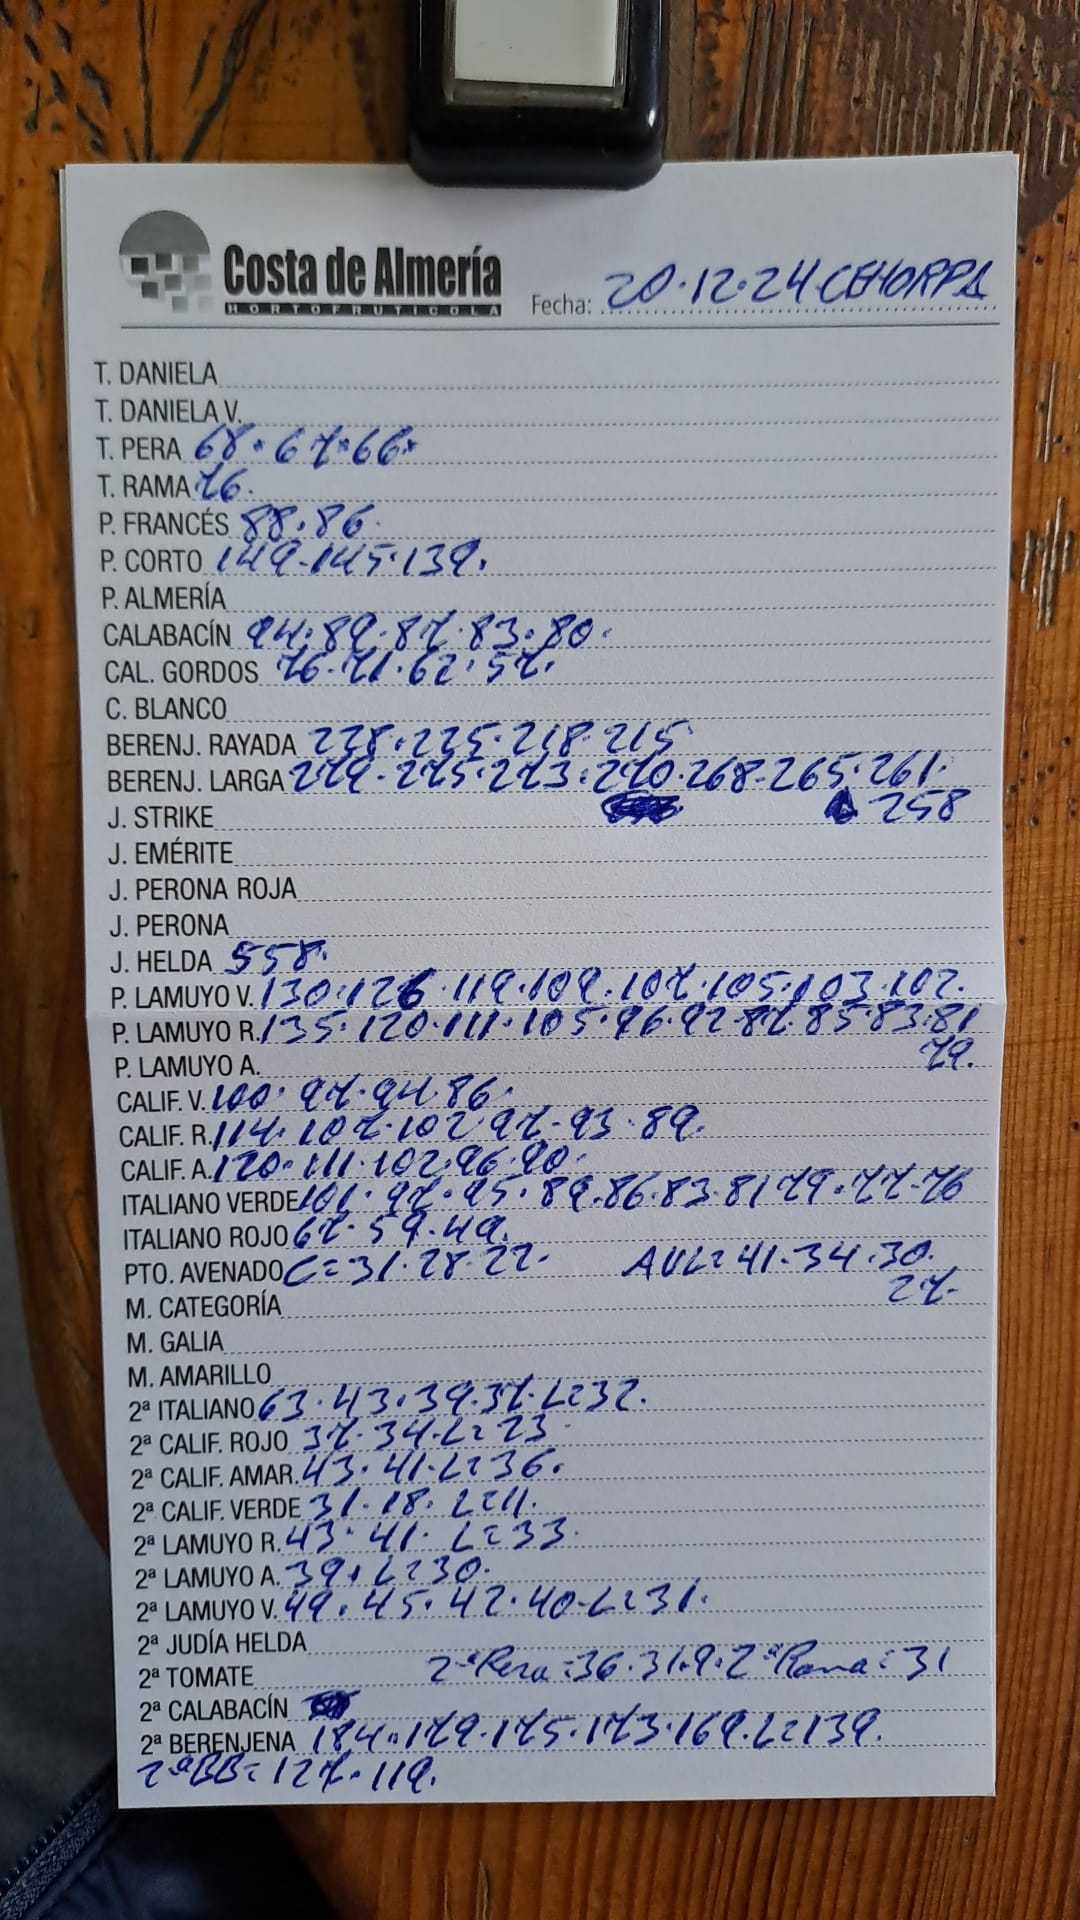 Costa de Almería
HORTOFRUTICOLA
Fecha: 20.12.24 CEHORPA
T. DANIELA
T. DANIELA V.
T. PERA 68.67.66.
T. RAMA 76.
P. FRANCÉS 88.86.
P. CORTO 149.145.139.
P. ALMERÍA
CALABACÍN 94.89.87.83.80.
CAL. GORDOS 76.71.62.57.
C. BLANCO
BERENJ. RAYADA 228.225.218.215
BERENJ. LARGA 279.275.273.270.268.265.261.
258
J. STRIKE
J. EMÉRITE
J. PERONA ROJA
J. PERONA
J. HELDA 558.
P. LAMUYO V. 130.126.119.109.107.105.103.102.
P. LAMUYO R. 135.120.111.105.96.92.87.85.83.81
79.
P. LAMUYO A.
CALIF. V. 100.97.94.86.
CALIF. R. 114.107.102.97.93.89.
CALIF. A. 120.111.102.96.90.
ITALIANO VERDE 101.97.95.89.86.83.81.79.77.76
ITALIANO ROJO 67.59.49.
PTO. AVENADO C=31.28.22. AVL=41.34.30.
27.
M. CATEGORÍA
M. GALIA
M. AMARILLO
2ª ITALIANO 63.43.39.37.L=32.
2ª CALIF. ROJO 37.34.L=23
2ª CALIF. AMAR. 43.41.L=36.
2ª CALIF. VERDE 31.18.L=11.
2ª LAMUYO R. 43.41.L=33.
2ª LAMUYO A. 39.L=30.
2ª LAMUYO V. 49.45.42.40.L=31.
2ª JUDÍA HELDA
2ª TOMATE 2ªPera=36.31.9.2ªRama=31
2ª CALABACÍN
2ª BERENJENA 184.179.175.173.169.L=139.
2ªBB=127.119.